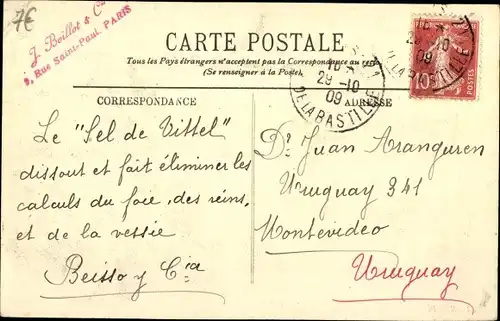 7€
J. Boillot & Cie
9, Rue Saint-Paul, PARIS
CARTE POSTALE
Tous les Pays étrangers n'acceptent pas la Correspondance au
(Se renseigner à la Poste).
29-10
09
DE LA BASTILLE
29-10
09
DE LA BASTILLE
10
POSTES
CORRESPONDANCE
Le "Sel de Vittel"
dissout et fait éliminer les
calculs du foie, des reins,
et de la vessie
Beisso y Cia
ADRESSE
Dr Juan Aranguren
Uruguay 341
Montevideo
Uruguay